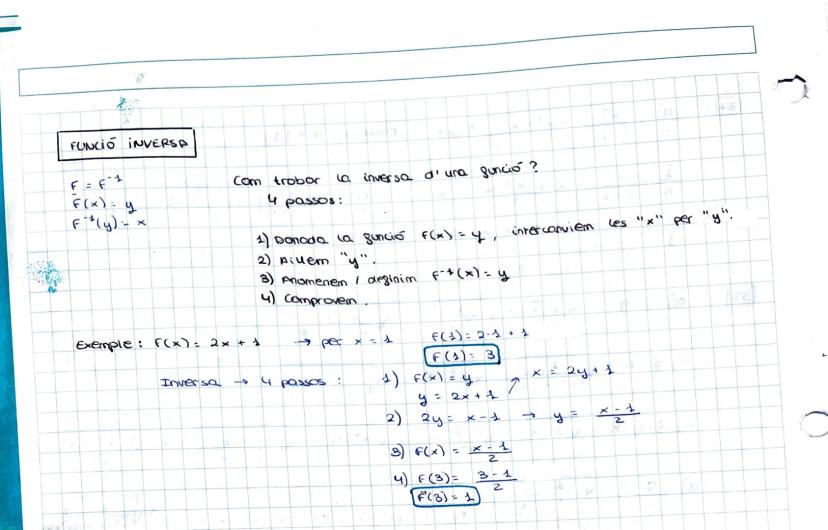 FUNCIÓ INVERSA
F = F⁻¹
F(x) = y
F⁻¹(y) = x
Com trobar la inversa d'una funció?
4 passos:
1) Donada la funció F(x) = y, intercanviem les "x" per "y".
2) Aïllem "y".
3) Anomenem / definim F⁻¹(x) = y
4) Comprovem.
Exemple: F(x) = 2x + 1 → per x = 1 F(1) = 2·1 + 1
F(1) = 3
Inversa → 4 passos: 1) F(x) = y
y = 2x + 1 ↗ x = 2y + 1
2) 2y = x - 1 → y = x - 1 / 2
3) F(x) = x - 1 / 2
4) F(3) = 3 - 1 / 2
F(3) = 1